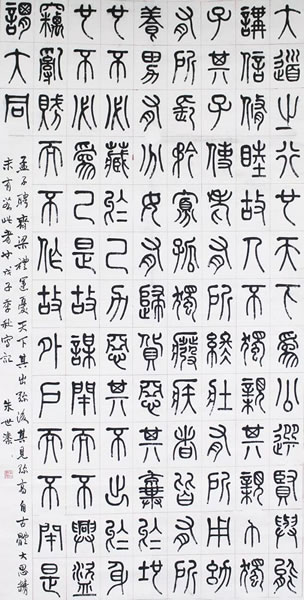 大道之行也天下為公選賢與能
講信脩睦故人不獨親其親不獨
子其子使老有所終壯有所用幼
有所長矜寡孤獨廢疾者皆有所
養男有分女有歸貨惡其棄於地
也不必藏於己力惡其不出於身
也不必為己是故謀閉而不興盜
竊亂賊而不作故外戶而不閉是
謂大同
孟子騁齊梁禮運憂天下其出弥後其見弥高自古體大思精
未有若此者也戊子季秋記
朱世